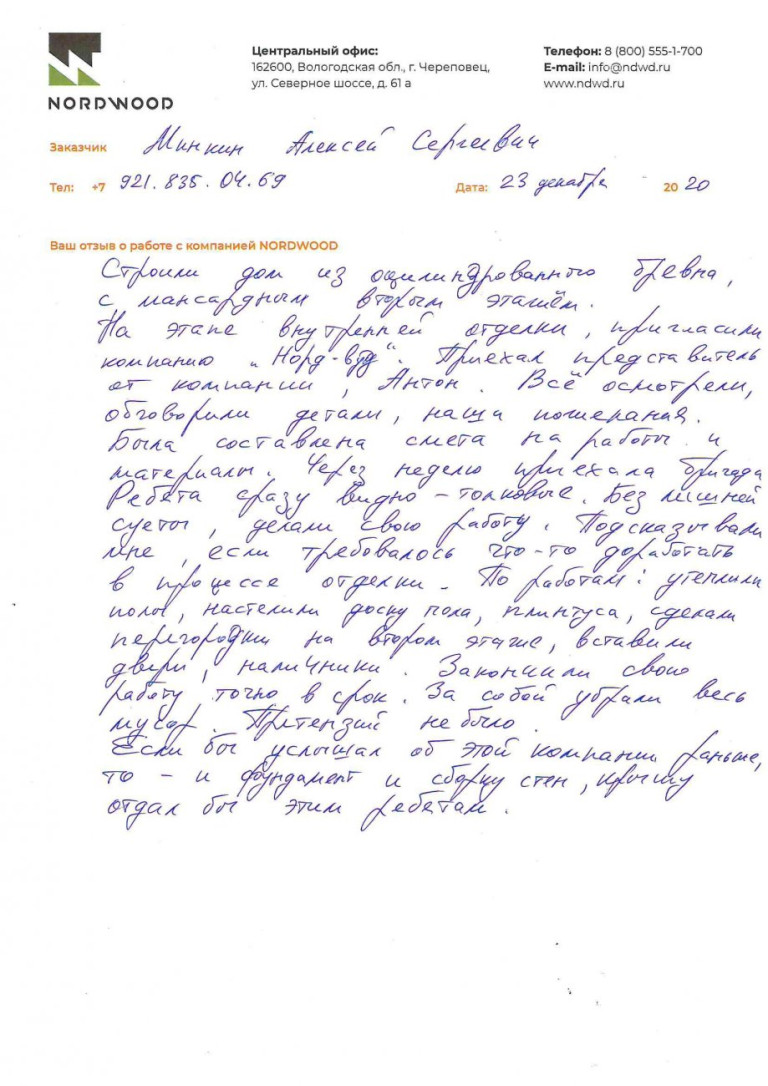 NORDWOOD
Центральный офис:
162600, Вологодская обл., г. Череповец,
ул. Северное шоссе, д. 61 а
Телефон: 8 (800) 555-1-700
E-mail: info@ndwd.ru
www.ndwd.ru
Заказчик Минкин Алексей Сергеевич
Тел: +7 921. 835. 04. 69 Дата: 23 декабря 20 20
Ваш отзыв о работе с компанией NORDWOOD
Строили дом из оцилиндрованного бревна,
с мансардным вторым этажём.
На этапе внутренней отделки, пригласили
компанию „Норд-вуд". Приехал представитель
от компании, Антон. Всё осмотрели,
обговорили детали, наши пожелания.
Была составлена смета на работы и
материалы. Через неделю приехала бригада
Ребята сразу видно - толковые. Без лишней
суеты, делали свою работу. Подсказывали
мне, если требовалось что-то доработать
в процессе отделки. По работам: утеплили
полы, настелили доску пола, плинтуса, сделали
перегородки на втором этаже, вставили
двери, наличники. Закончили свою
работу точно в срок. За собой убрали весь
мусор. Претензий не было.
Если бы услышал об этой компании раньше,
то - и фундамент и сборку стен, крышу
отдал бы этим ребятам.